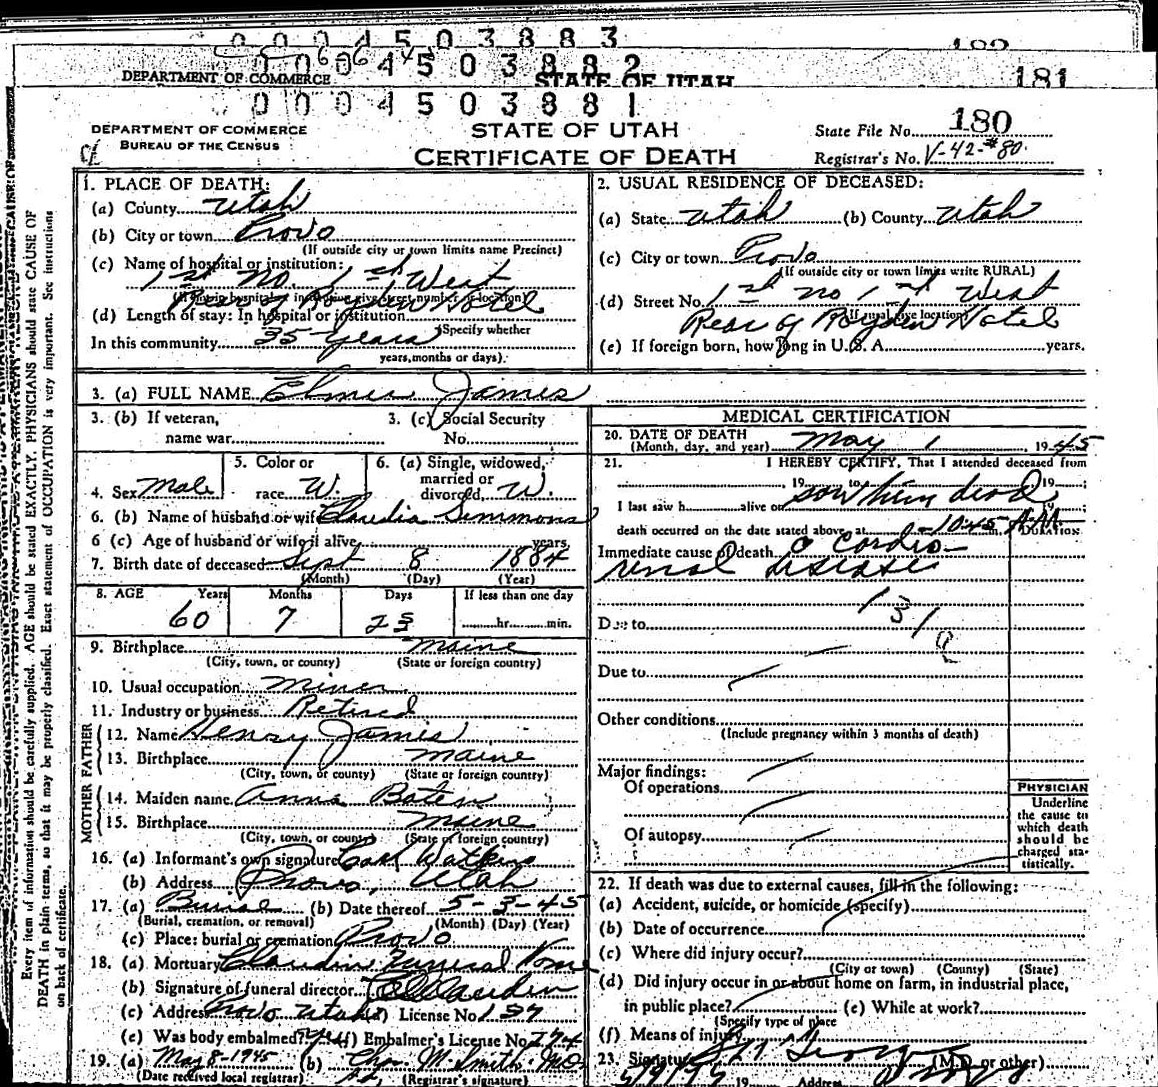 0004503883
182
0004503882
DEPARTMENT OF COMMERCE STATE OF UTAH 181
0004503881
DEPARTMENT OF COMMERCE
BUREAU OF THE CENSUS
STATE OF UTAH
CERTIFICATE OF DEATH
State File No. 180
Registrar's No. V-42-#80
1. PLACE OF DEATH:
(a) County Utah
(b) City or town Provo
(If outside city or town limits name Precinct)
(c) Name of hospital or institution:
1st No. 1st West
Rear Royden Hotel
(If not in hospital or institution give street number or location)
(d) Length of stay: In hospital or institution
(Specify whether
In this community 35 years
years, months or days).
2. USUAL RESIDENCE OF DECEASED:
(a) State Utah (b) County Utah
(c) City or town Provo
(If outside city or town limits write RURAL)
(d) Street No. 1st no 1st West
(If rural give location)
Rear of Royden Hotel
(e) If foreign born, how long in U. S. A. years.
3. (a) FULL NAME Elmer James
3. (b) If veteran, name war
3. (c) Social Security No.
4. Sex Male
5. Color or race W.
6. (a) Single, widowed, married or divorced, W.
6. (b) Name of husband or wife Claudia Simmons
6 (c) Age of husband or wife if alive years
7. Birth date of deceased Sept 8 1884
(Month) (Day) (Year)
8. AGE Years Months Days If less than one day
60 7 23 hr. min.
9. Birthplace Maine
(City, town, or county) (State or foreign country)
10. Usual occupation Miner
11. Industry or business Retired
FATHER
12. Name Henry James
13. Birthplace Maine
(City, town, or county) (State or foreign country)
MOTHER
14. Maiden name Anna
15. Birthplace Maine
(City, town, or county) (State or foreign country)
16. (a) Informant's own signature Carl Watkins
(b) Address Provo, Utah
17. (a) Burial (b) Date thereof 5-3-45
(Burial, cremation, or removal) (Month) (Day) (Year)
(c) Place: burial or cremation Provo
18. (a) Mortuary Claudin Funeral Home
(b) Signature of funeral director Claudin
(c) Address Provo Utah (d) License No 127
(e) Was body embalmed? yes (f) Embalmer's License No. 274
19. (a) May 8-1945 (b) Chas. M. Smith. MD
(Date received local registrar) (Registrar's signature)
MEDICAL CERTIFICATION
20. DATE OF DEATH
(Month, day, and year) May 1, 1945
21. I HEREBY CERTIFY, That I attended deceased from
19 to 19
I last saw h alive on saw him dead 19
death occurred on the date stated above, at 10:45 A.M. m. DURATION
Immediate cause of death Cardio-
renal disease
131a
Due to
Due to
Other conditions
(Include pregnancy within 3 months of death)
Major findings:
Of operations
Of autopsy
PHYSICIAN
Underline
the cause to
which death
should be
charged sta-
tistically.
22. If death was due to external causes, fill in the following:
(a) Accident, suicide, or homicide (specify)
(b) Date of occurrence
(c) Where did injury occur?
(City or town) (County) (State)
(d) Did injury occur in or about home on farm, in industrial place,
in public place? (e) While at work?
(Specify type of place
(f) Means of injury
23. Signature (M.D. or other)
19 Address
Every item of information should be carefully supplied. AGE should be stated EXACTLY. PHYSICIANS should state CAUSE OF
DEATH in plain terms, so that it may be properly classified. Exact statement of OCCUPATION is very important. See instructions
on back of certificate.